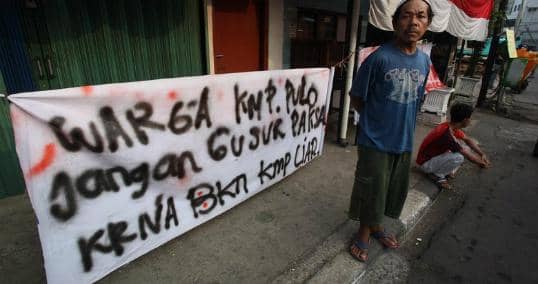 WARGA KMP. PULO
Jangan GUSUR PAKSA
KRNA BKN KMP LIAR